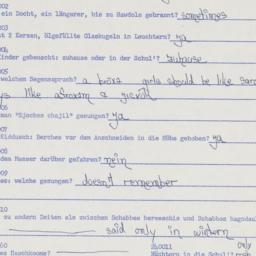 002
ein Docht, ein längerer, bis zu Hawdole gebrannt? sometimes
003
t 2 Kerzen, Ölgefüllte Glaskugeln in Leuchtern? ya
004
Kinder gebenscht: zuhause oder in der Schul'? zuhause
005
welchem Segensspruch? a boxə girls should be like sar
ys like
006
man "Ejsches chajil" gesungen? ya
007
Kiddusch: Berches vor dem Anschneiden in die Höhe gehoben? ya
008
dem Messer darüber gefahren? nein
009
es: welche gesungen? doesn't remember
010
zu andern Zeiten als zwischen Schabbes bereschis und Schabbos hagodul
said only in wintern
only